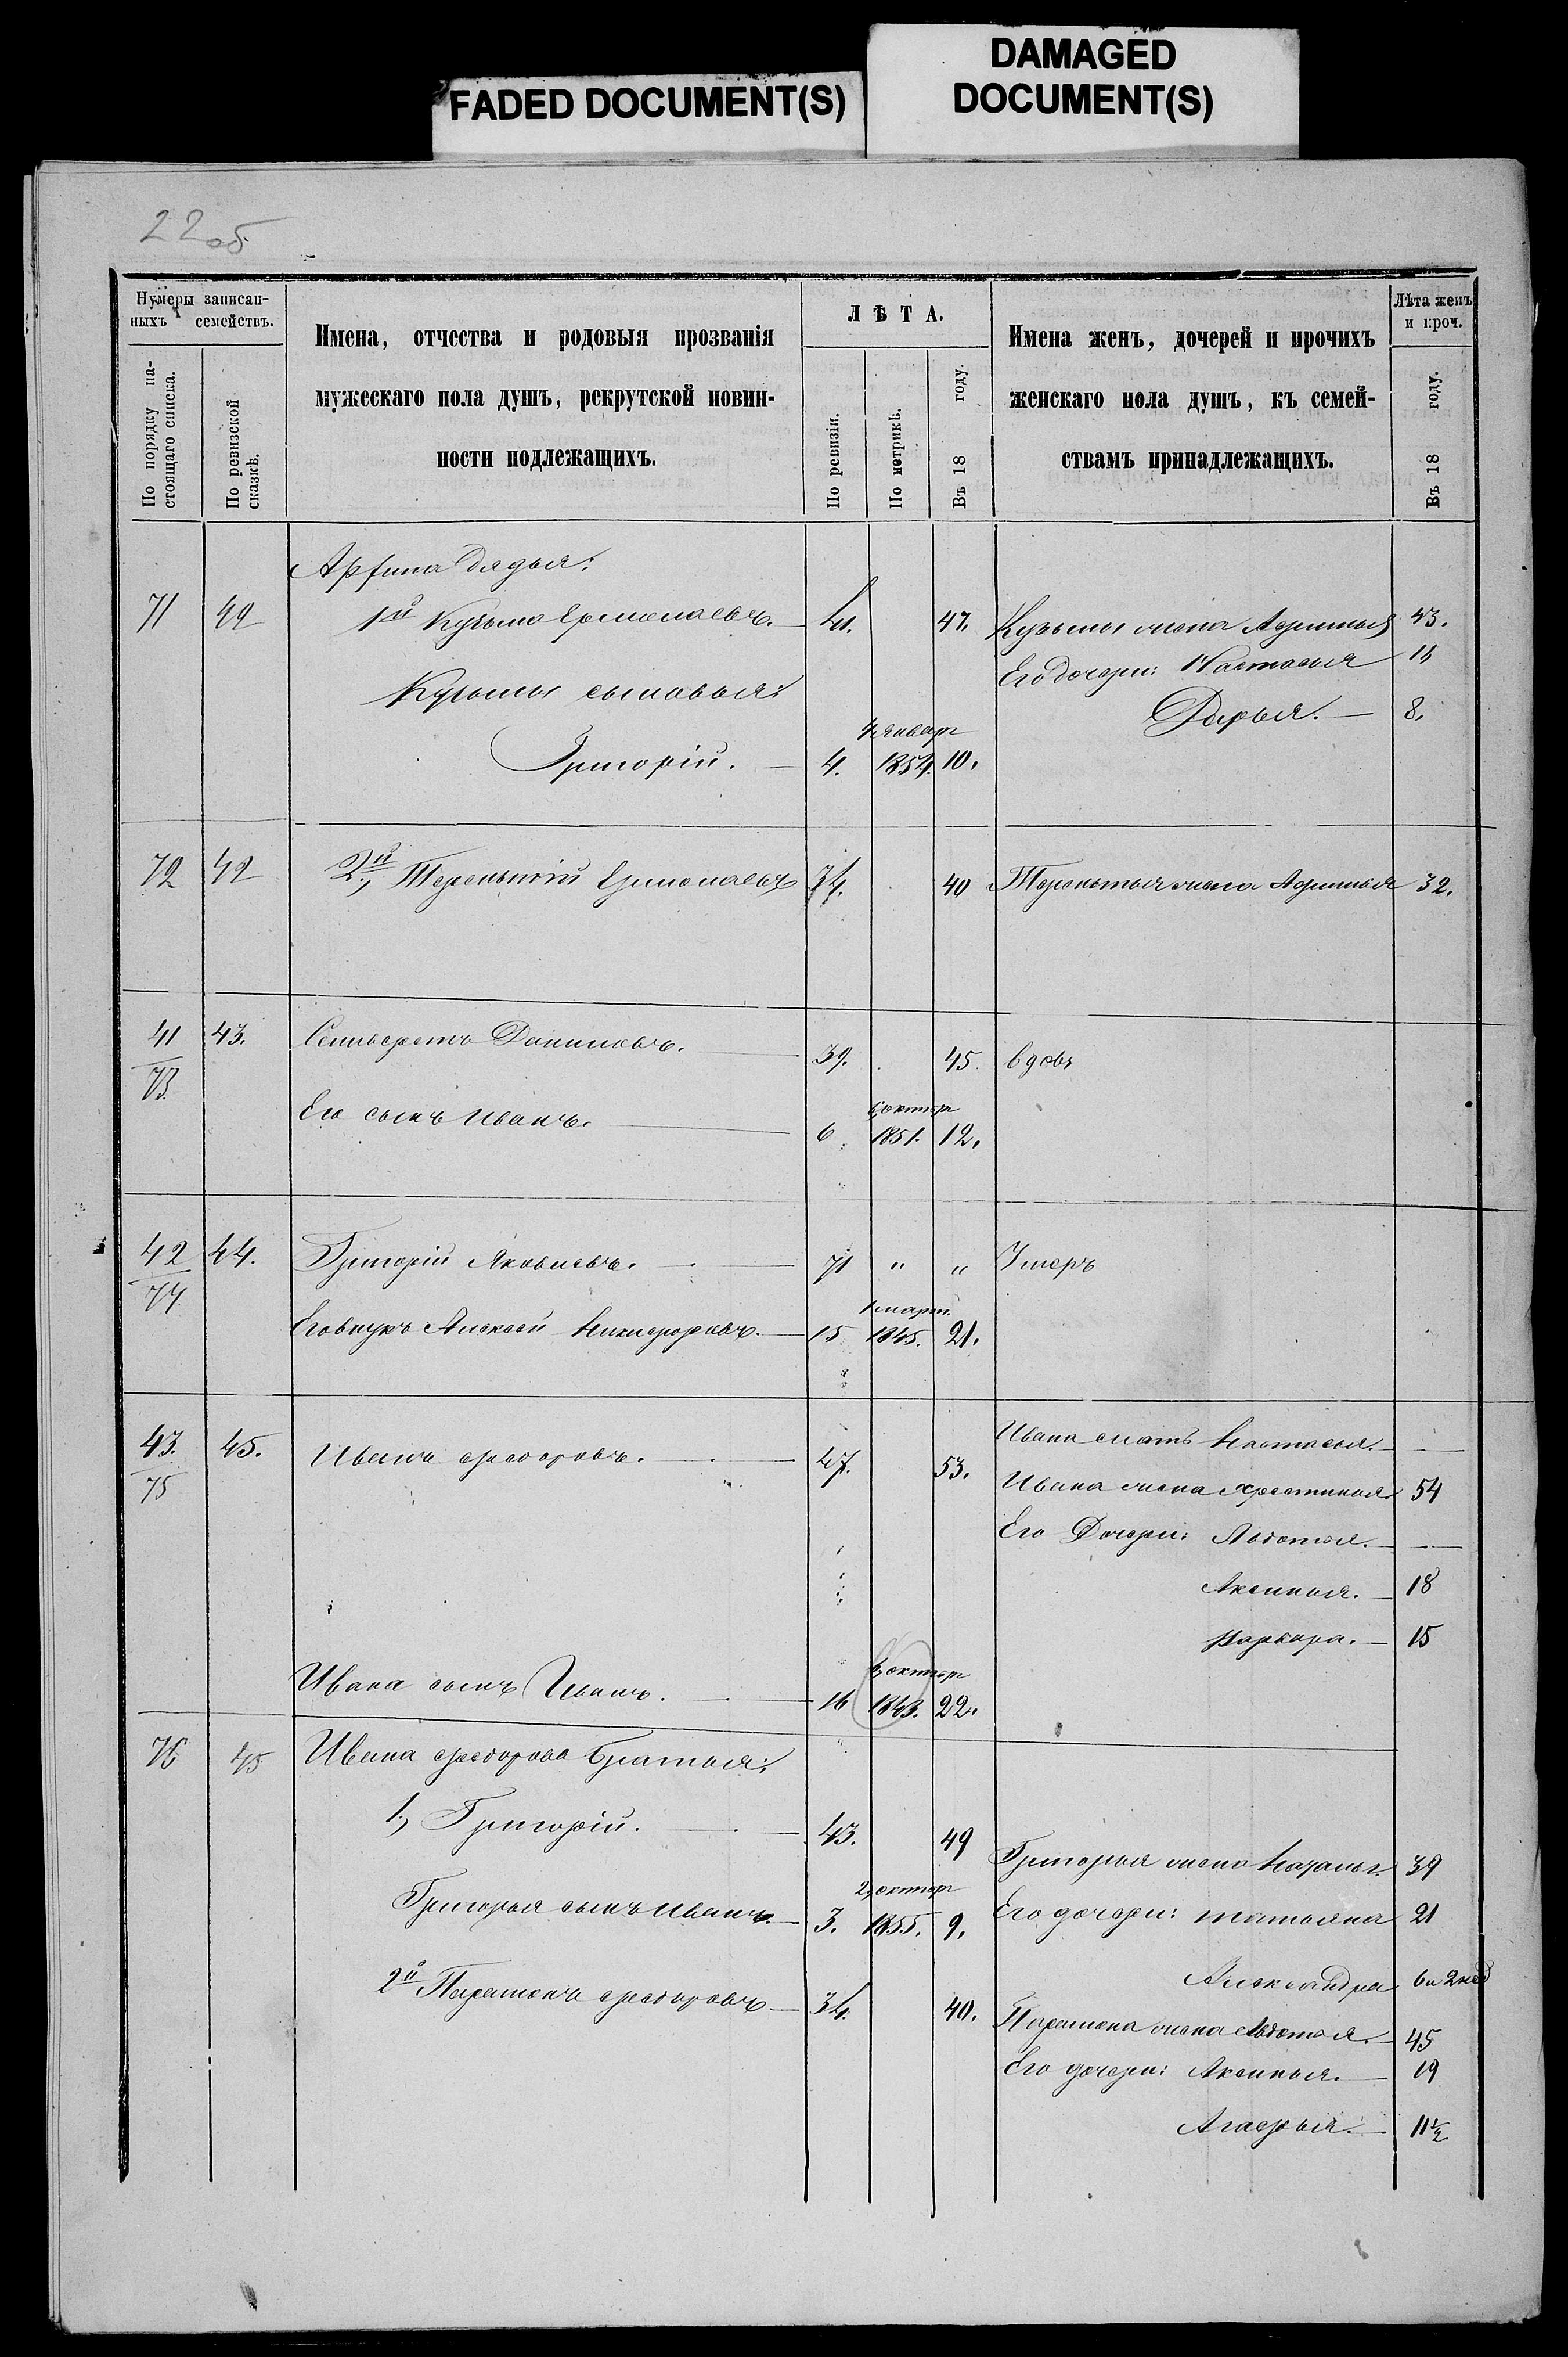 FADED DOCUMENT(S)
DAMAGED
DOCUMENT(S)
22об
Нумеры записан-
ныхъ семействъ.
По порядку на-
стоящаго списка.
По ревизской
сказкѣ.
Имена, отчества и родовыя прозванія
мужескаго пола душъ, рекрутской повин-
ности подлежащихъ.
ЛѢТА.
По ревизіи.
По метрикѣ.
Въ 18 году.
Имена женъ, дочерей и прочихъ
женскаго пола душъ, къ семей-
ствамъ принадлежащихъ.
Лѣта женъ
и проч.
Въ 18 году.
дядья:
71 42 1й Кузьма Ермолаевъ. 41. 47. Кузьмы жена 43.
Его дочери: Настасья
Кузьмы сыновья:
Дарья. 8.
4 январ
Григорій. 4. 1854. 10.
72 42 2й Терентій Ермолаевъ 34. 40 Терентья жена 32.
41 43. Селиверстъ Даниловъ. 39. 45. вдовъ
73.
6 октяр
Его сынъ Иванъ. 6. 1851. 12.
42 44. Григорій Яковлевъ. 71 " " Умеръ
74
1 март.
Его внукъ Алексѣй Никифоровъ. 15 1845. 21.
43. 45. Иванъ Федоровъ. 47. 53.
75
Ивана мать Настасья.
Ивана жена Хрестинья 54
Его Дочери: Авдотья.
Аксинья. 18
Варвара. 15
октяр
Ивана сынъ Иванъ. 16 1843. 22.
76 45 Ивана Федорова братья:
1, Григорій. 43. 49
Григорья жена 39
2, октяр
Григорья сынъ Иванъ. 3. 1855. 9.
Его дочери: Татьяна 21
Александра 6 и 2 нед
2й Парамонъ Федоровъ 34. 40.
Парамона жена Авдотья. 45
Его дочери: Аксинья. 19
Агафья. 11½